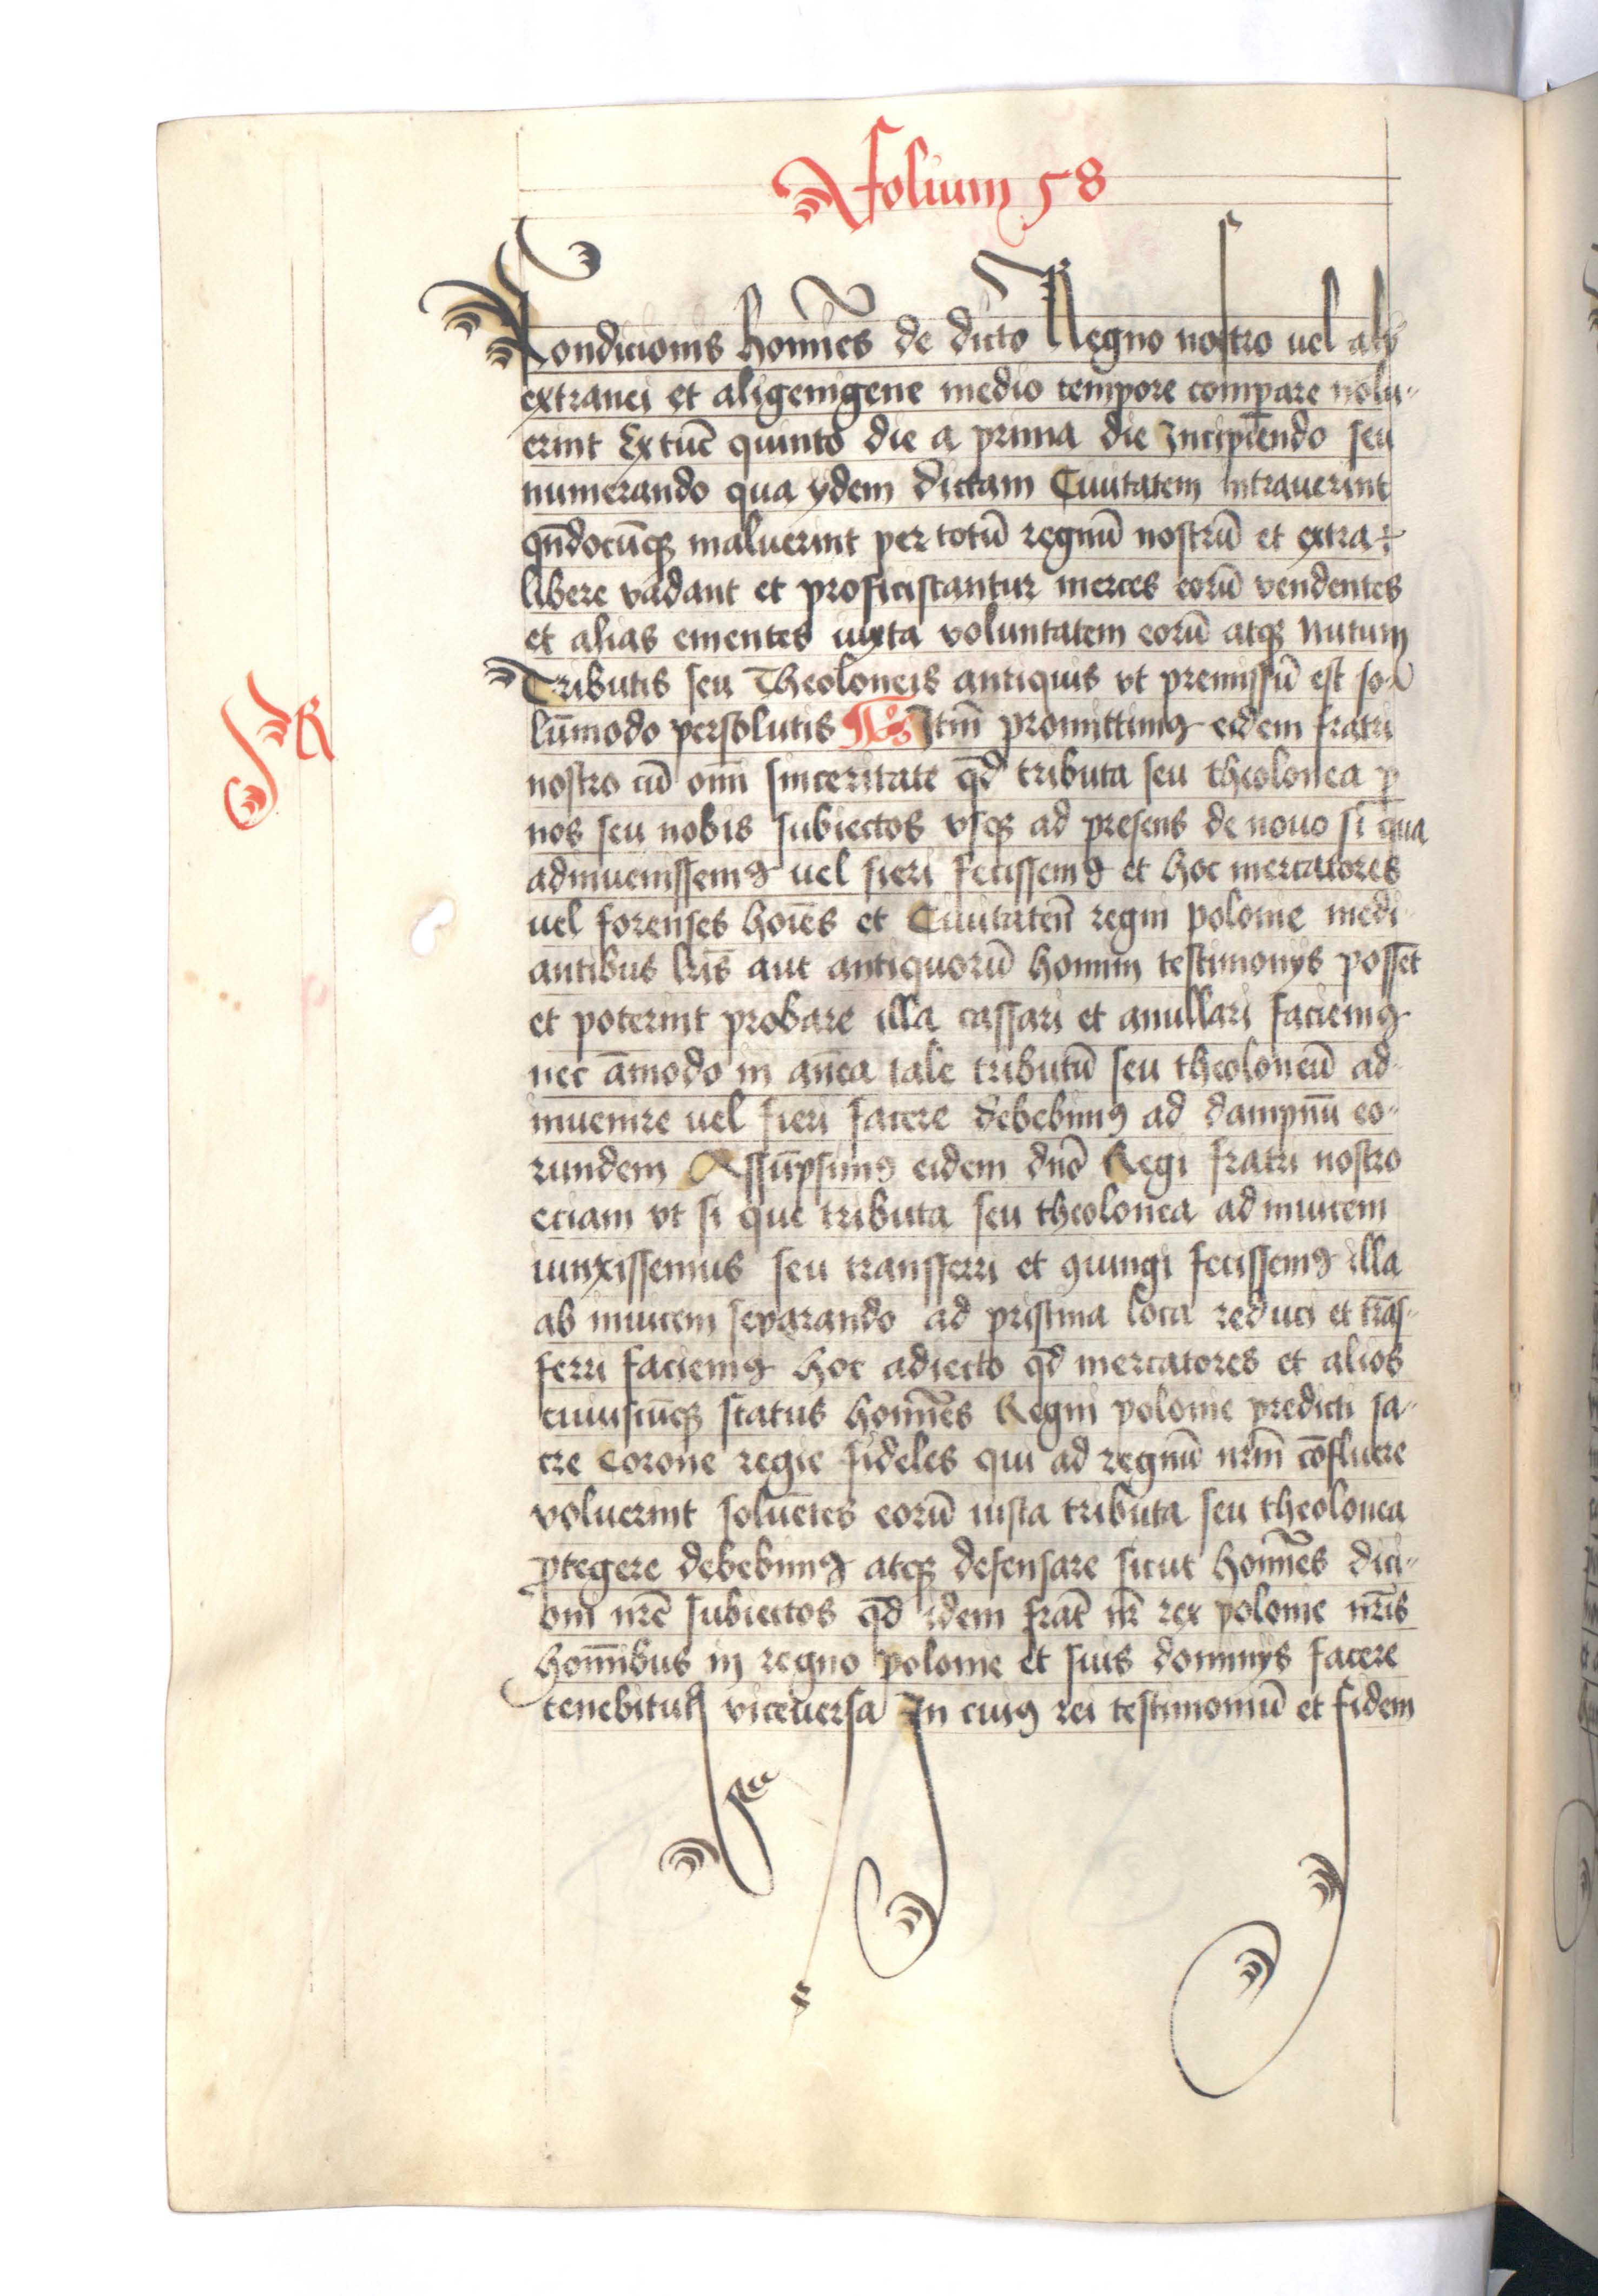 folium 58
Condicionis homīes de dicto Regno nostro uel alij
extranei et aligenigene medio tempore comparare nolu-
erint Extūc quinto die a prima die Incipiendo seu
numerando qua ydem dictam Ciuitatem intrauerint
qn̄docūqꝫ maluerint per totū regnū nostrū et extra
libere vadant et proficiscantur merces eorū vendentes
et alias ementes iuxta voluntatem eorū atqꝫ nutum
Tributis seu Theoloneis antiquis vt premissū est so-
lūmodo persolutis Itm̄ promittimꝰ eidem fratri
nostro cū om̄i sinceritate qd̄ tributa seu theolonea ꝑ
nos seu nobis subiectos vsqꝫ ad presens de nouo si qua
adinuenissemꝰ uel fieri fecissemꝰ et hoc mercatores
uel forenses hoīes et Ciuitateñ regni polonie medi-
antibus lr̄is aut antiquorū homin̄ testimonijs possēt
et poterint probare illa cassari et anullari faciemꝰ
nec āmodo in anēa tale tributū seu theoloneū ad-
inuenire uel fieri facere debebimꝰ ad dampnū eo-
rundem Assūpsimꝰ eidem dn̄o Regi fratri nostro
eciam vt si que tributa seu theolonea ad inuicem
iunxissemus seu transferri et ꝯiungi fecissemꝰ illa
ab inuicem separando ad pristina loca reduci et trās-
ferri faciemꝰ hoc adiecto qd̄ mercatores et alios
cuiuscūqꝫ status homīes Regni polonie predicti sa-
cre Corone regie fideles qui ad regnū nr̄m cōfluere
voluerint soluētes eorū iusta tributa seu theolonea
ꝓtegere debebimꝰ atqꝫ defensare sicut homīes dici-
oni nr̄e subiectos qd̄ idem frat̄ nr̄ rex polonie nr̄is
homībus in regno polonie et suis dominijs facere
tenebitur viceuersa In cuiꝰ rei testimoniū et fidem